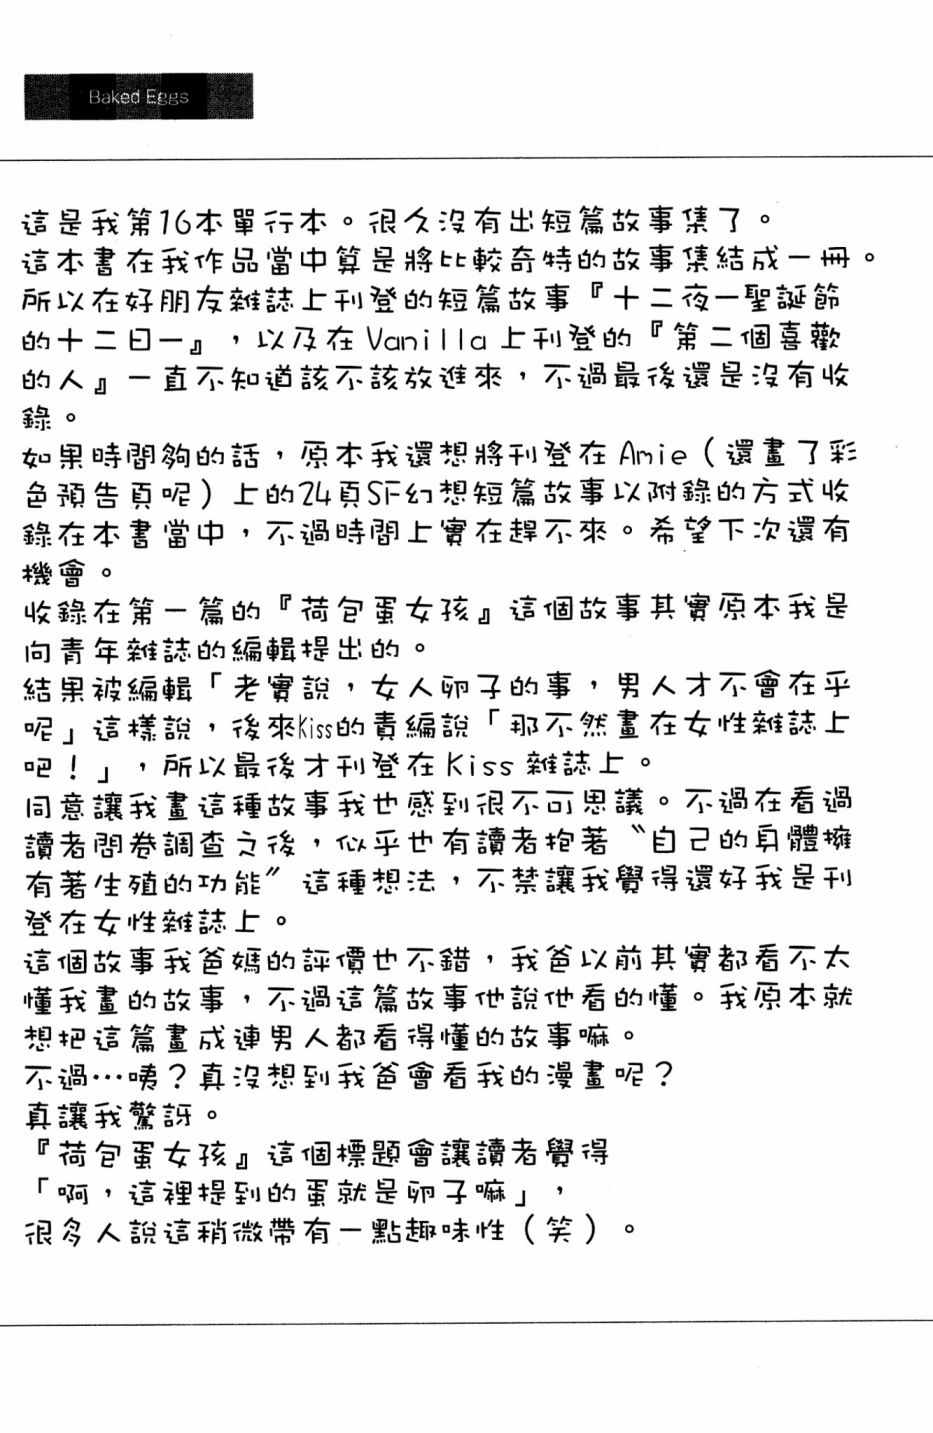 Baked Eggs
這是我第16本單行本。很久沒有出短篇故事集了。
這本書在我作品當中算是將比較奇特的故事集結成一冊。
所以在好朋友雜誌上刊登的短篇故事『十二夜—聖誕節
的十二日—』，以及在Vanilla上刊登的『第二個喜歡
的人』一直不知道該不該放進來，不過最後還是沒有收
錄。
如果時間夠的話，原本我還想將刊登在Amie（還畫了彩
色預告頁呢）上的24頁SF幻想短篇故事以附錄的方式收
錄在本書當中，不過時間上實在趕不來。希望下次還有
機會。
收錄在第一篇的『荷包蛋女孩』這個故事其實原本我是
向青年雜誌的編輯提出的。
結果被編輯「老實說，女人卵子的事，男人才不會在乎
呢」這樣說，後來Kiss的責編說「那不然畫在女性雜誌上
吧！」，所以最後才刊登在Kiss雜誌上。
同意讓我畫這種故事我也感到很不可思議。不過在看過
讀者問卷調查之後，似乎也有讀者抱著〝自己的身體擁
有著生殖的功能〞這種想法，不禁讓我覺得還好我是刊
登在女性雜誌上。
這個故事我爸媽的評價也不錯，我爸以前其實都看不太
懂我畫的故事，不過這篇故事他說他看的懂。我原本就
想把這篇畫成連男人都看得懂的故事嘛。
不過…咦？真沒想到我爸會看我的漫畫呢？
真讓我驚訝。
『荷包蛋女孩』這個標題會讓讀者覺得
「啊，這裡提到的蛋就是卵子嘛」，
很多人說這稍微帶有一點趣味性（笑）。